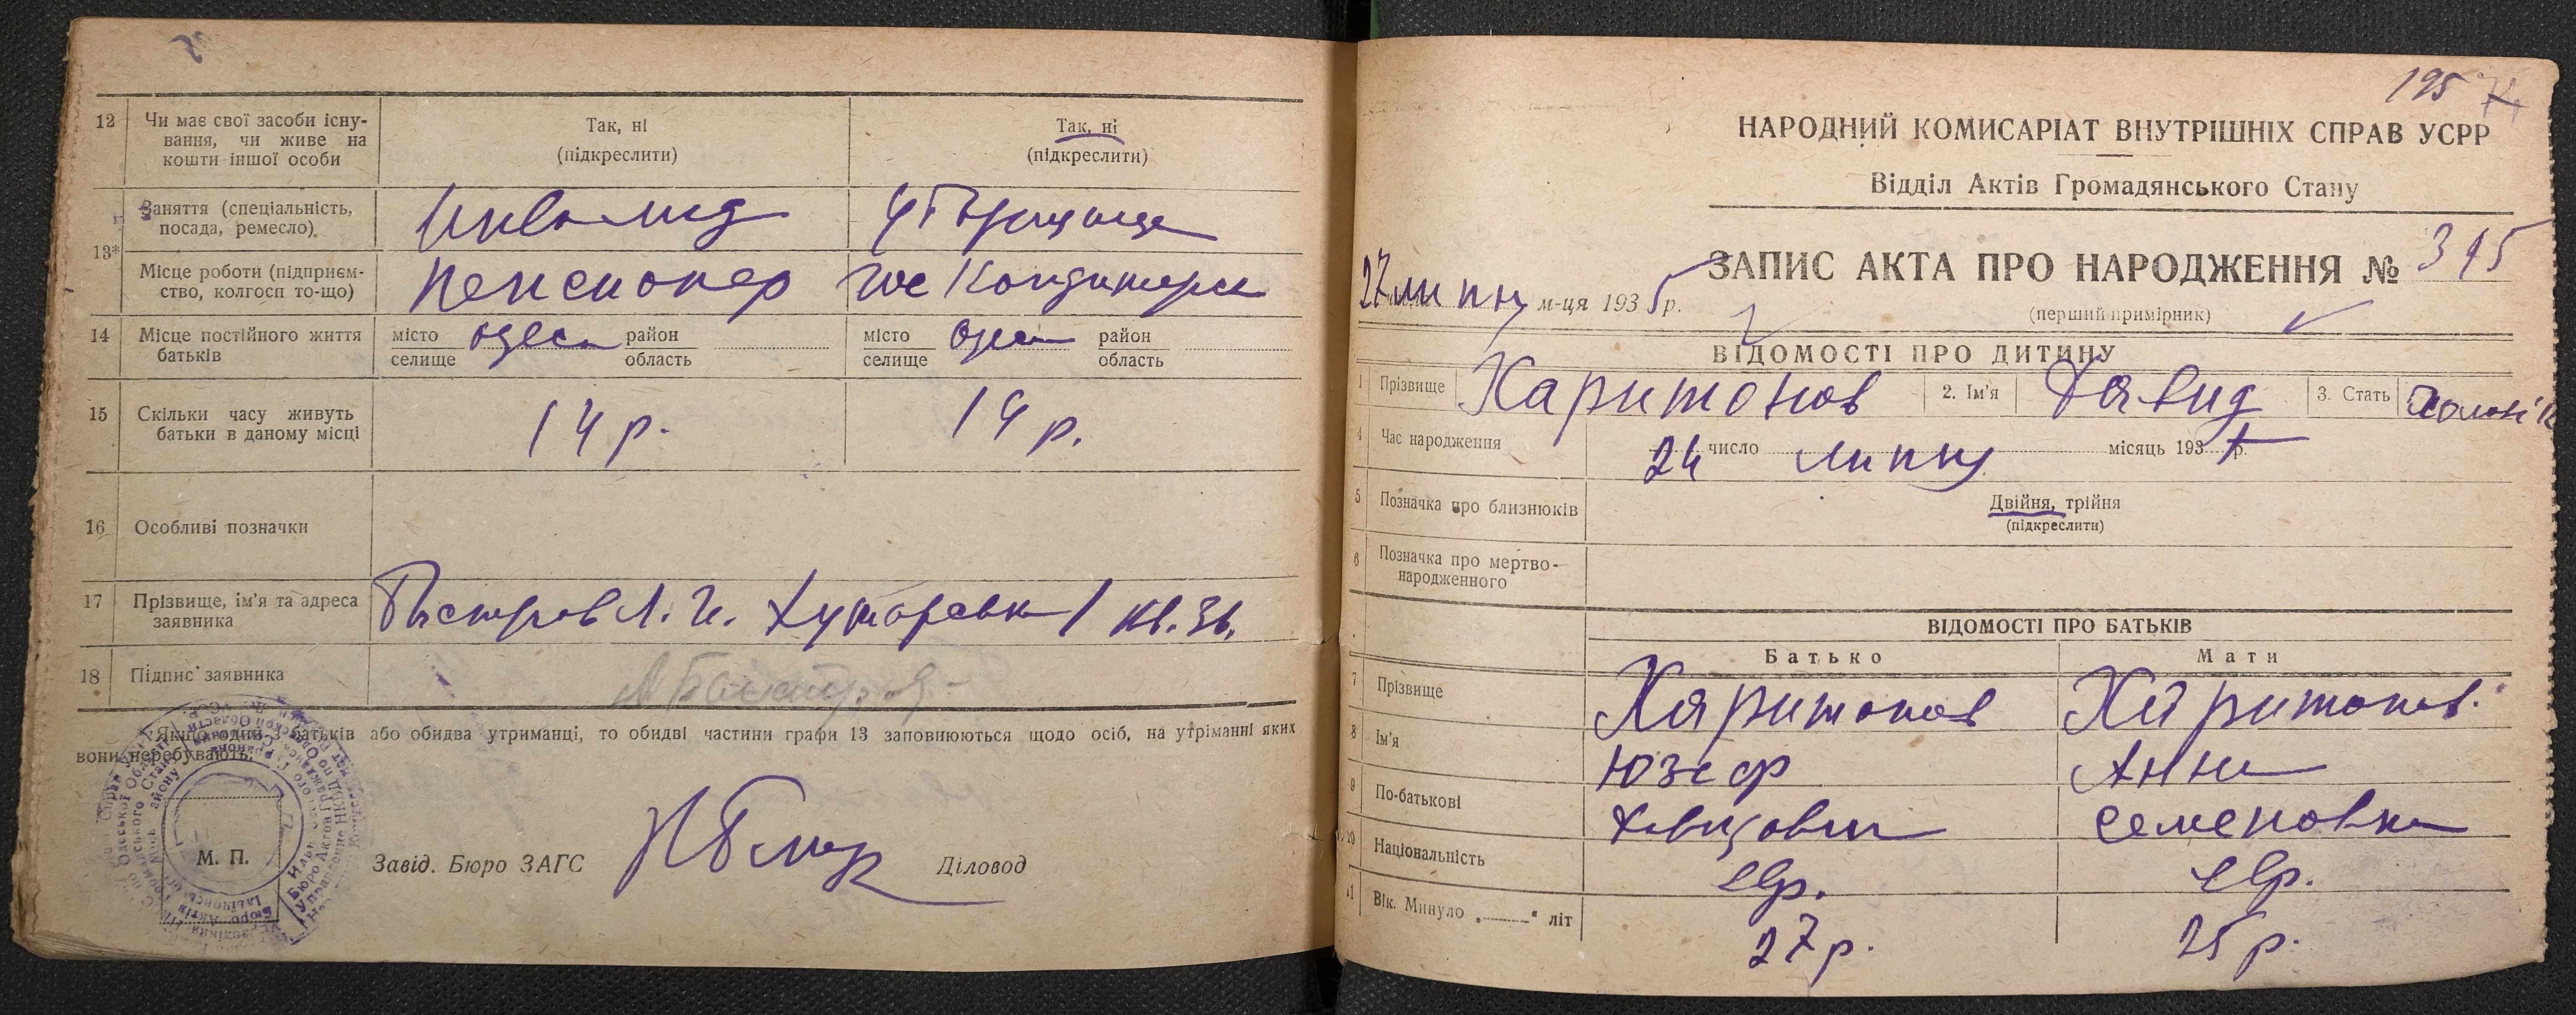 12 Чи має свої засоби існу-
вання, чи живе на
кошти іншої особи
Так, ні
(підкреслити)
Так, ні
(підкреслити)
13*
Заняття (спеціальність,
посада, ремесло)
Инвалид
Місце роботи (підприєм-
ство, колгосп то-що)
пенсионер
14 Місце постійного життя
батьків
місто Одеса район
селище область
місто Одеса район
селище область
15 Скільки часу живуть
батьки в даному місці
14 р.
14 р.
16 Особливі позначки
17 Прізвище, ім'я та адреса
заявника
кв. 36.
18 Підпис заявника
*Якщо один з батьків або обидва утриманці, то обидві частини графи 13 заповнюються щодо осіб, на утріманні яких
вони перебувають.
М. П.
Завід. Бюро ЗАГС
Діловод
195
НАРОДНИЙ КОМИСАРІАТ ВНУТРІШНІХ СПРАВ УСРР
Відділ Актів Громадянського Стану
ЗАПИС АКТА ПРО НАРОДЖЕННЯ № 395
27 липня м-ця 1935 р.
(перший примірник)
ВІДОМОСТІ ПРО ДИТИНУ
1 Прізвище Харитонов 2. Ім'я Давид 3. Стать
4 Час народження 24 число липня місяць 193 р.
5 Позначка про близнюків
Двійня, трійня
(підкреслити)
6 Позначка про мертво-
народженного
ВІДОМОСТІ ПРО БАТЬКІВ
Батько Мати
7 Прізвище Харитонов Харитонов.
8 Ім'я Юзеф Анна
9 По-батькові Семеновна
10 Національність євр. євр.
11 Вік. Минуло „ “ літ 27 р. 25 р.